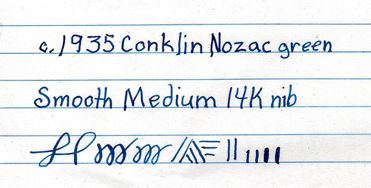 c.1935 Conklin Nozac green
Smooth Medium 14K nib